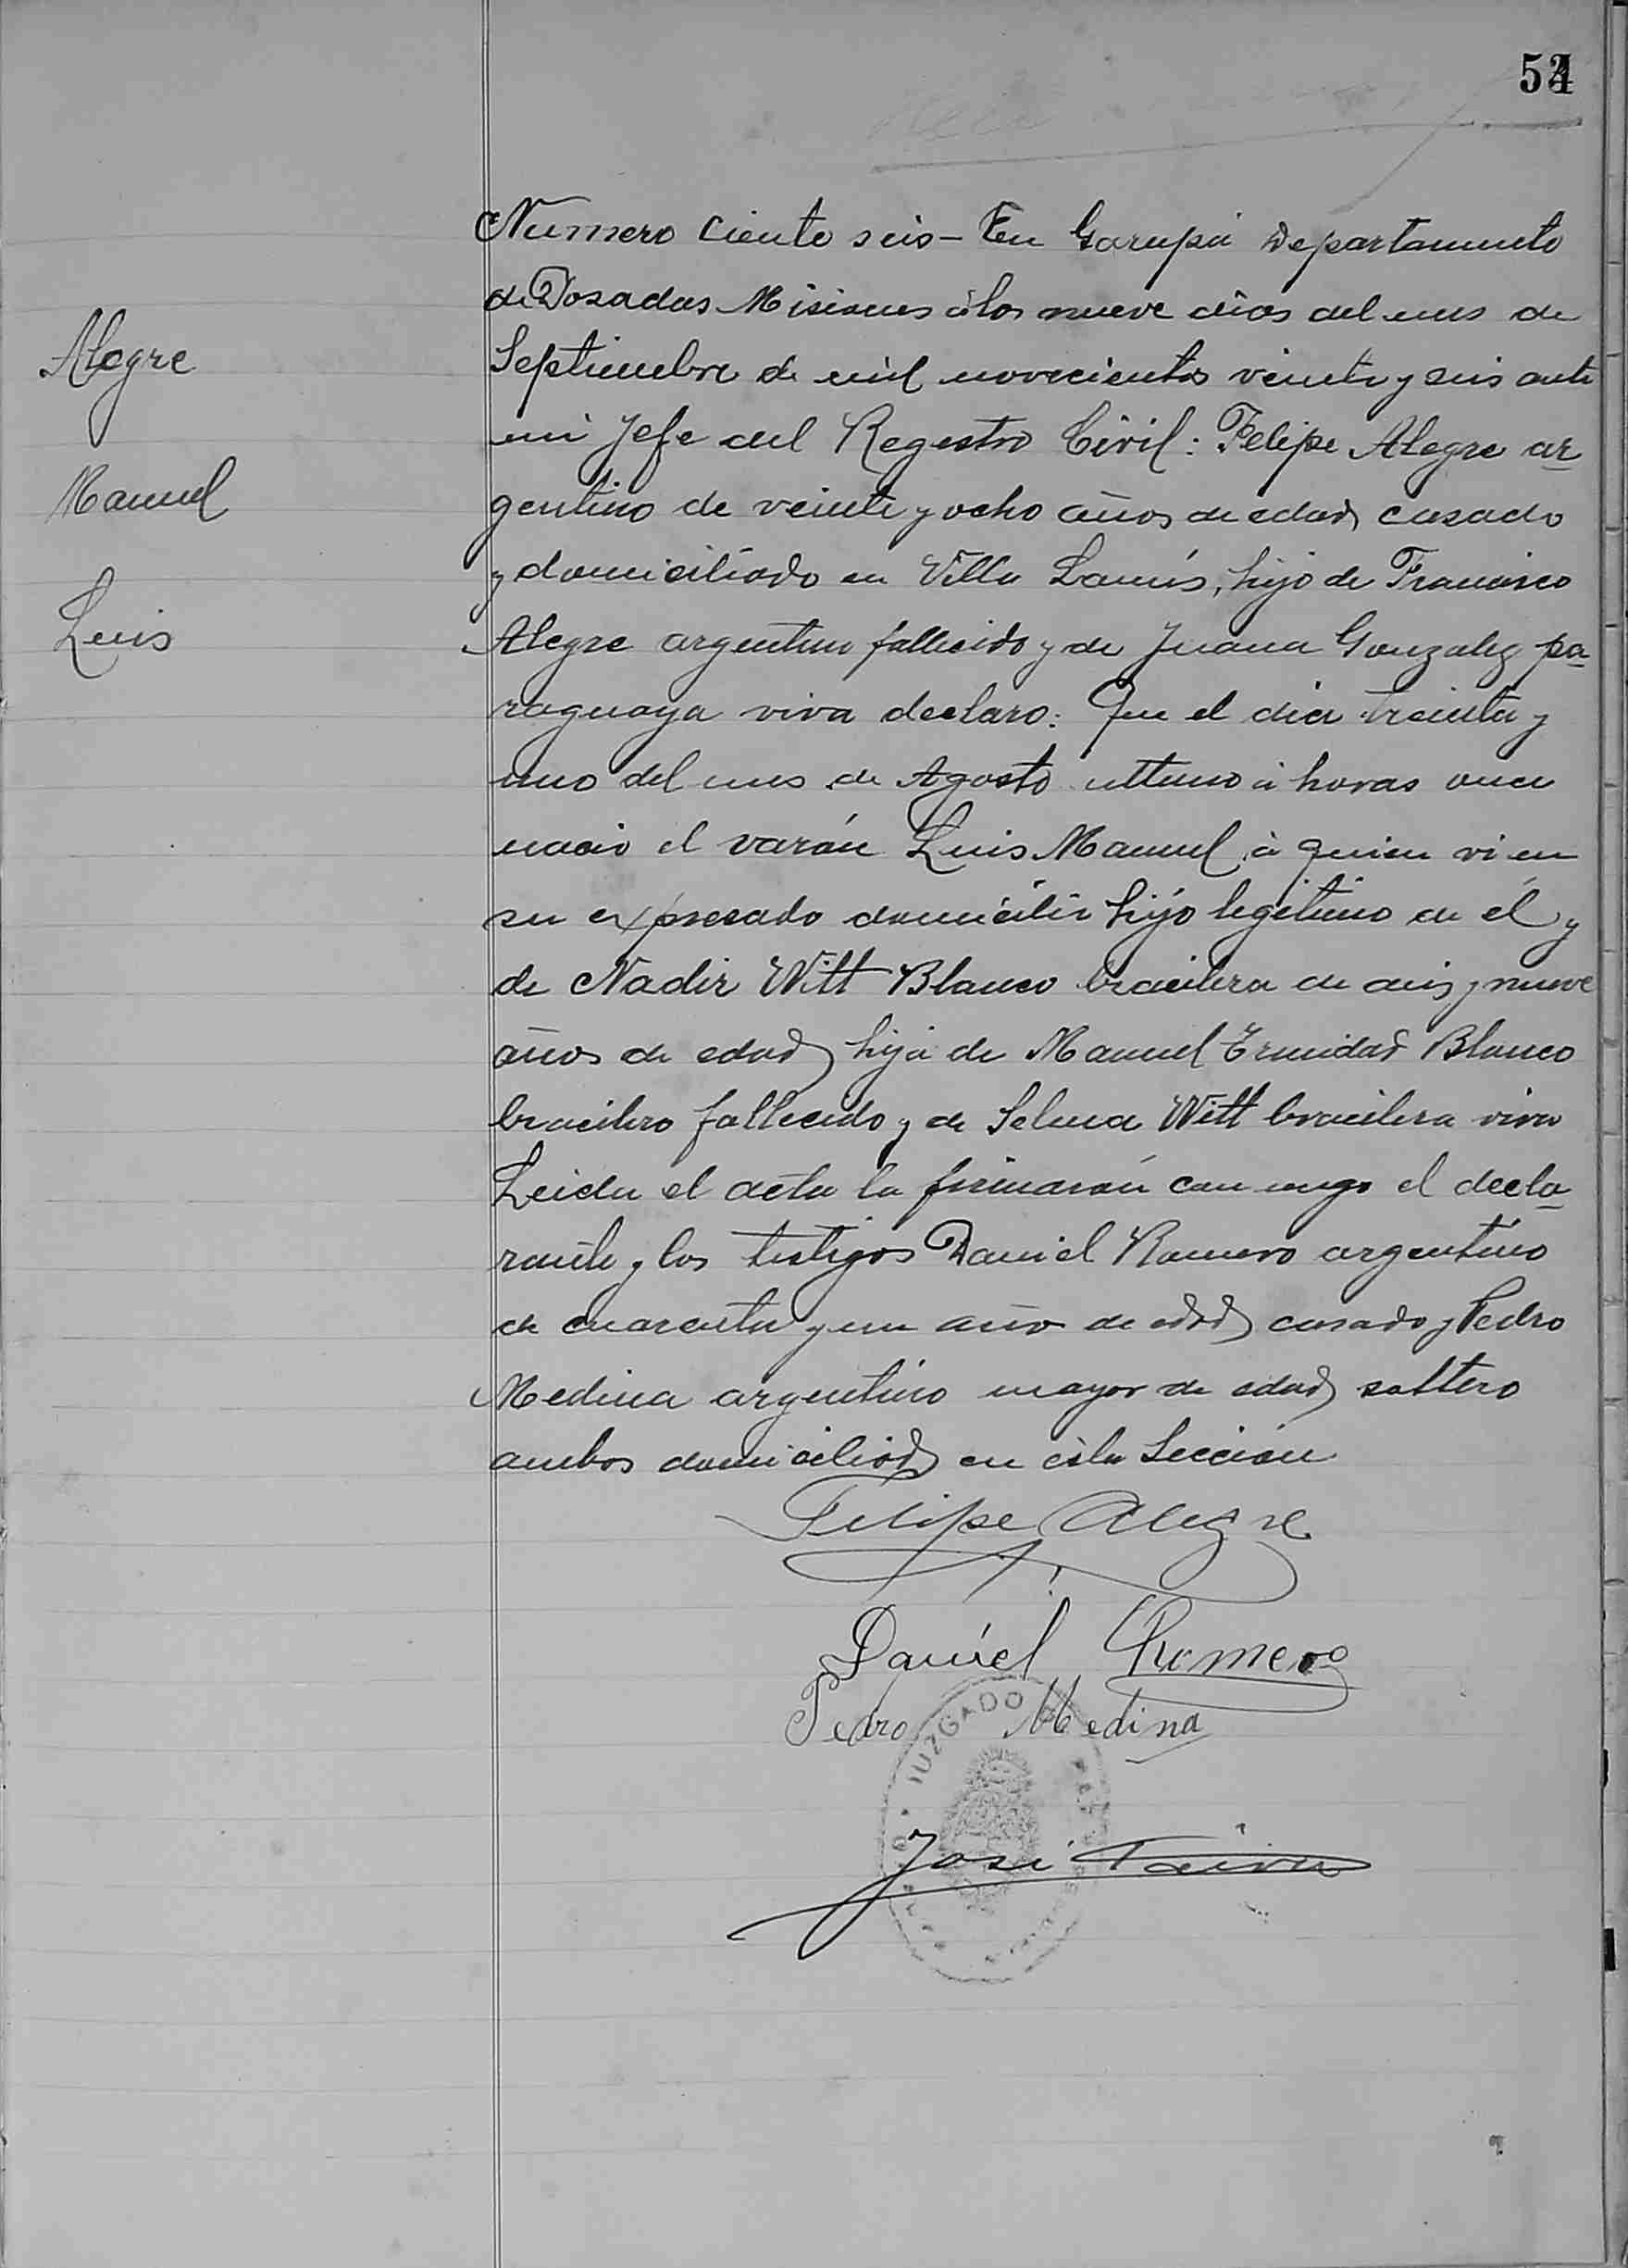 Numero ciento seis - En Garupá Departamento
de Posadas Misiones á los nueve dias del mes de
Septiembre de mil novecientos veinte y seis ante
mi Jefe del Regestro Civil: Felipe Alegre ar
gentino de veinte y ocho años de edad casado
y domiciliado en Villa Lanús, hijo de Francisco
Alegre argentino fallecido y de Juana Gonzalez pa
raguaya viva declaro: Que el dia treinta y
uno del mes de Agosto ultimo á horas once
nacio el varón Luis Manuel á quien vi en
su expresado domicilio hijo legitimo de él y
de Nadir Witt Blanco bracilera de diez y nueve
años de edad hija de Manuel Trinidad Blanco
bracilero fallecido y de Selma Witt bracilera viva
Leida el acta la firmaron con migo el decla
rante y los testigos Daniel Romero argentino
de cuarenta y un año de edad casado y Pedro
Medina argentino mayor de edad soltero
ambos domiciliad en ésta Sección
Alegre
Manuel
Luis
Felipe Alegre
Daniel Romero
Pedro Medina
JUZGADO
José